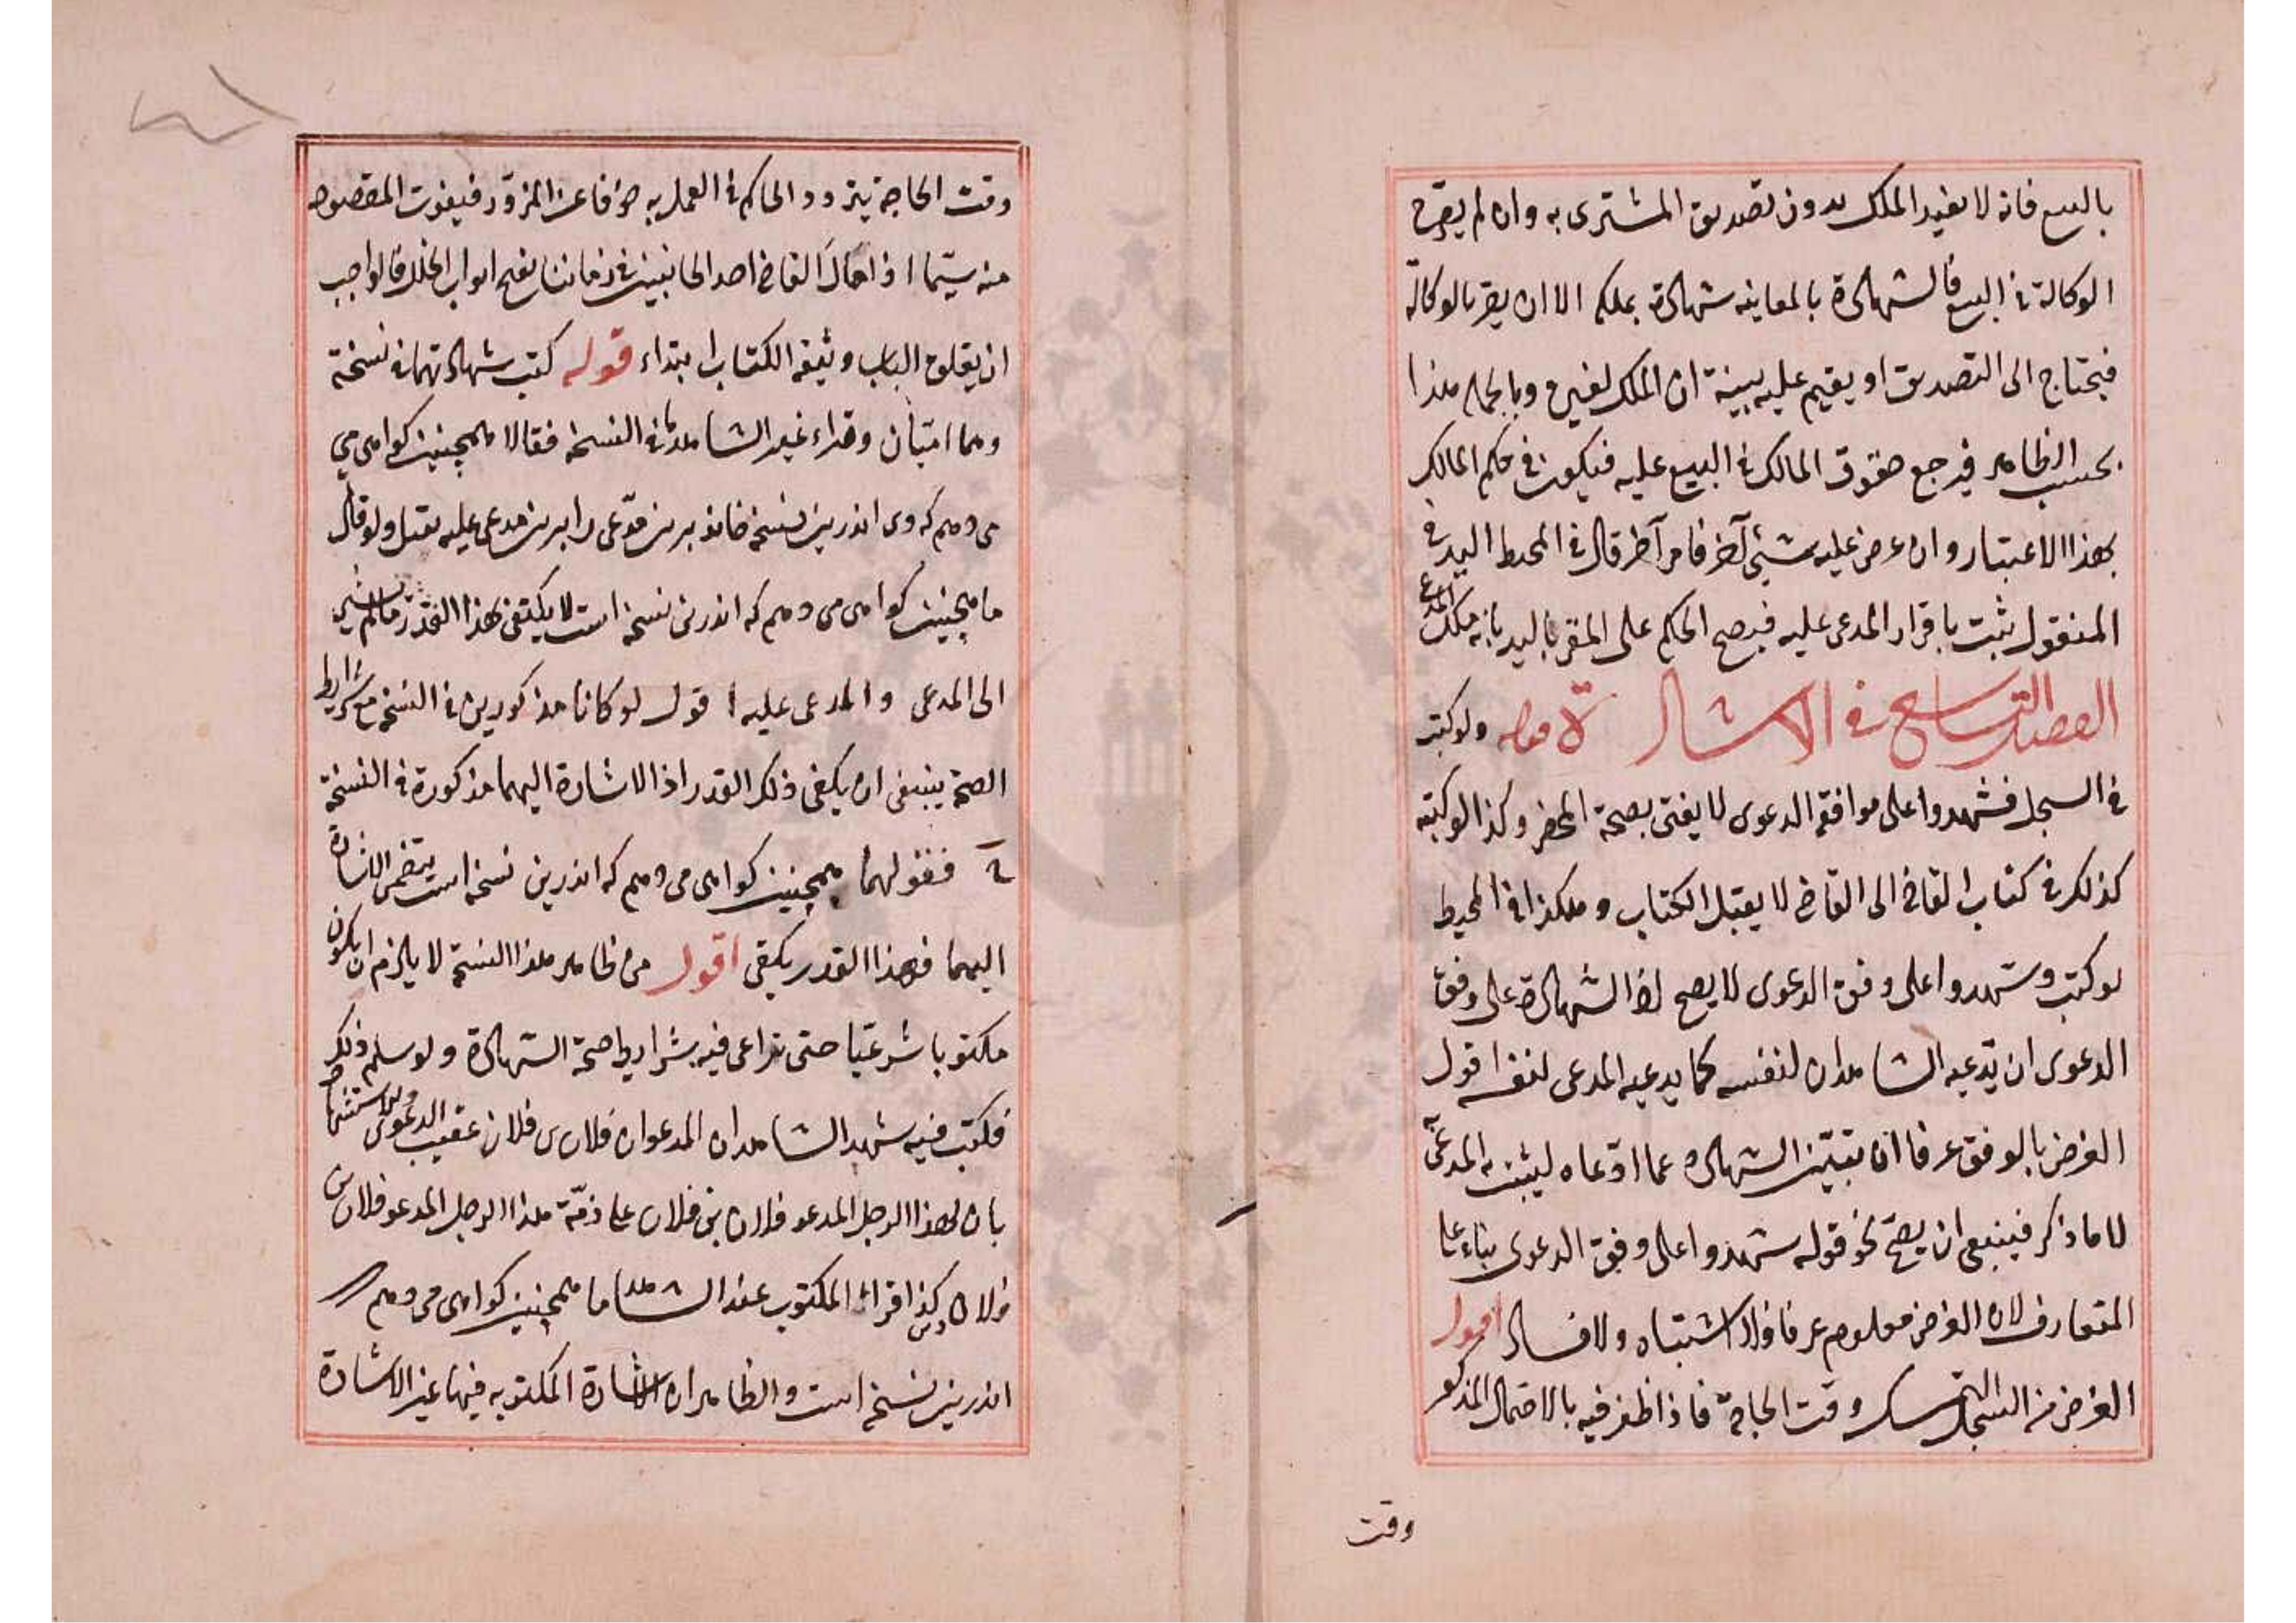 بالبيع فانه لا يفيد الملك بدون تصديق المشترى به وان لم يصرح
الوكالة فى البيع فالشهادة بالمعاينه شهادة بملكه الا ان يقر بالوكالة
فيحتاج الى التصديق او يقيم عليه بينة ان الملك لغيره وبالجمله هذا
بحسب الظاهر فيرجع حقوق المالك فى البيع عليه فيكون فى حكم المالك
بهذا الاعتبار وان عرض عليه شيئ آخر فامر آخر قال فى المحيط اليد فى
المنقول يثبت باقرار المدعى عليه فيصح الحكم على المقر باليد بانه ملك المدعى
الفصل التاسع فى الاشارة قوله ولو كتب
فى السجل فشهدوا على موافقة الدعوى لا يفتى بصحة المحضر وكذا لو كتبه
كذلك فى كتاب القاضى الى القاضى لا يقبل الكتاب وهكذا فى المحيط
لو كتب وشهدوا على وفق الدعوى لا يصح اذ الشهادة على وفق
الدعوى ان يدعيه الشاهدان لنفسه كما يدعيه المدعى لنفسه اقول
الغرض بالوفق عرفا ان الشهادة عما ادعاه ليثبت به المدعى
لا ما ذكر فينبغى ان يصح نحو قوله شهدوا على وفق الدعوى بناء على
المتعارف لان الغرض معلوم عرفا فلا اشتباه ولا فساد اقول
الغرض من السجل التمسك وقت الحاجة فاذا ظفر فيه بالاحتمال المذكور
وقت
وقت الحاجة يتردد الحاكم فى العمل به خوفا عن المزور فيفوت المقصود
منه سيما اذا مال القاضى احد الجانبين فى زماننا بفتح ابواب الخلل فالواجب
ان يغلق الباب وثيقة الكتاب ابتداء قوله كتب شهادتهما فى نسخة
وهما اميان وقراء غير الشاهد ما فى النسخة فقالا ما همچنين كواهى مى
مى دهم كه وى اندرين نسخه خاند برين مدعى را برين مدعى عليه يقبل ولو قال
ما همچنين كواهى مى دهم كه اندرين نسخه است لا يكتفى بهذا القدر ما لم يشير
الى المدعى والمدعى عليه اقول لو كانا مذكورين فى النسخه مع شرايط
الصحة ينبغى ان يكفى ذلك القدر اذ الاشارة اليهما مذكورة فى النسخة
فقولهما همچنين كواهى مى دهم كه اندرين نسخه است يتضمن الاشارة
اليهما فهذا القدر يكفى اقول من ظاهر هذا النسخة لا يلزم ان يكون
مكتوبا شرعيا حتى يراعى فيه شرايط صحة الشهادة ولو سلم ذلك
فكتب فيه شهد الشاهدان المدعوان فلان بن فلان عقيب الدعوى والاستشهاد
بان لهذا الرجل المدعو فلان بن فلان على ذمة هذا الرجل المدعو فلان بن
فلان كذا اقراء المكتوب عند الشاهد ما همچنين كواهى مى دهم
اندرين نسخه است والظاهر ان الاشارة المكتوبه فيها غير الاشارة